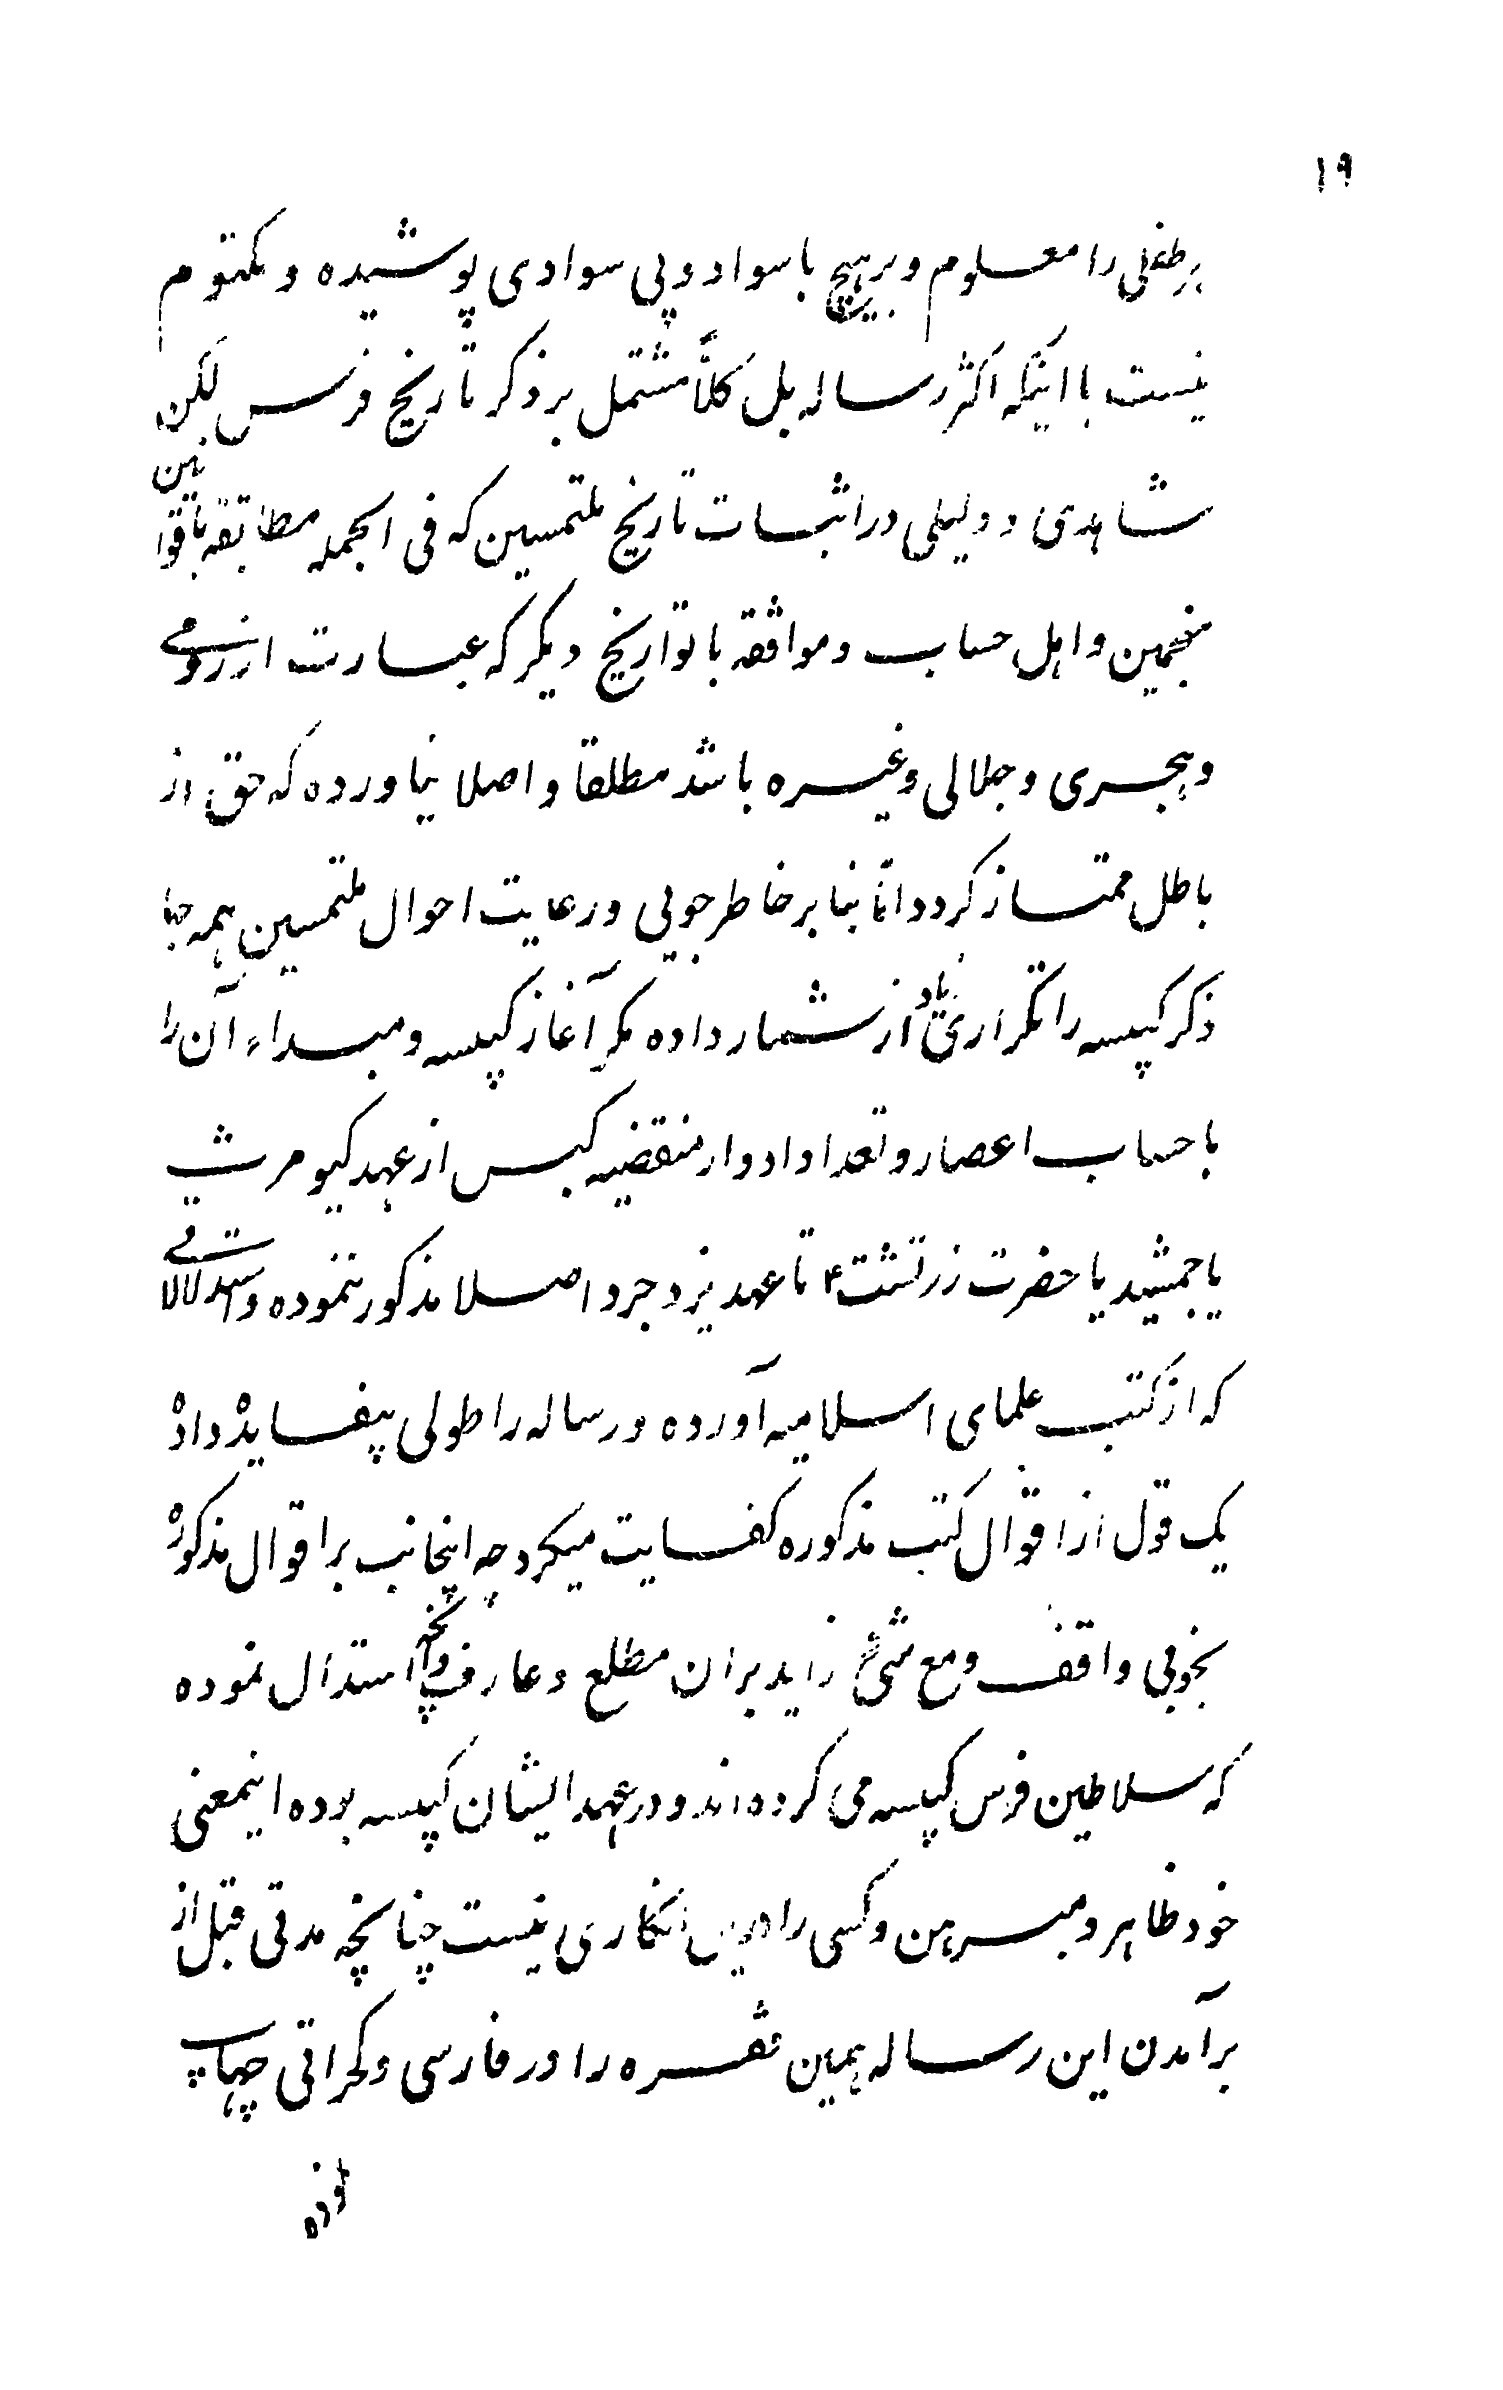 ۱۹
بر طفلی را معلوم و بر هیچ با سواد و بی سوادی پوشیده و مکتوم
نیست با اینکه اکثر رساله بل کلاً مشتمل بر ذکر تاریخ فرس لکن
شاهدی و دلیلی در اثبات تاریخ ملتمسین که فی الجمله مطابقة باقوانین
منجمین و اهل حساب و موافقه با تواریخ دیکر که عبارت از رومی
و هجری و جلالی و غیره باشد مطلقا و اصلا نیاورده که حق از
باطل ممتاز کردد امّا بنا بر خاطر جویی و رعایت احوال ملتمسین همه جا
ذکر کبیسه را تکراری زیاد از شمار داده مکر آغاز کبیسه و مبداء آن را
با حساب اعصار و تعداد ادوار منقضیه کبس از عهد کیومرث
یا جمشید یا حضرت زرتشت ۴ تا عهد یزدجرد اصلا مذکور ننموده و استدلالاتی
که از کتب علمای اسلامیه آورده و رساله را طولی بیفایده داده
یک قول از اقوال کتب مذکوره کفایت میکرد چه اینجانب بر اقوال مذکوره
بخوبی واقف و مع شیٔ زاید بران مطلع و عارف و آنچه استدال نموده
که سلاطین فرس کبیسه می کرده اند و در عهد ایشان کبیسه بوده اینمعنی
خود ظاهر و مبرهن و کسی را درین انکاری نیست چنانچه مدتی قبل از
برآمدن این رساله همین فقره را در فارسی و کجراتی چهاپ